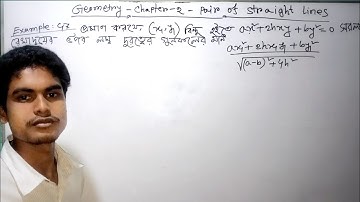 Geometry - Chapter-2 - Pair of Straight Lines
Example: প্রমাণ করযে, (x,y) বিন্দু হইতে ax²+2hxy+by²=0 সরল
উপর লম্ব দূরত্বের গুণফলের মান ax²+2hxy+by² / √(a-b)²+4h²